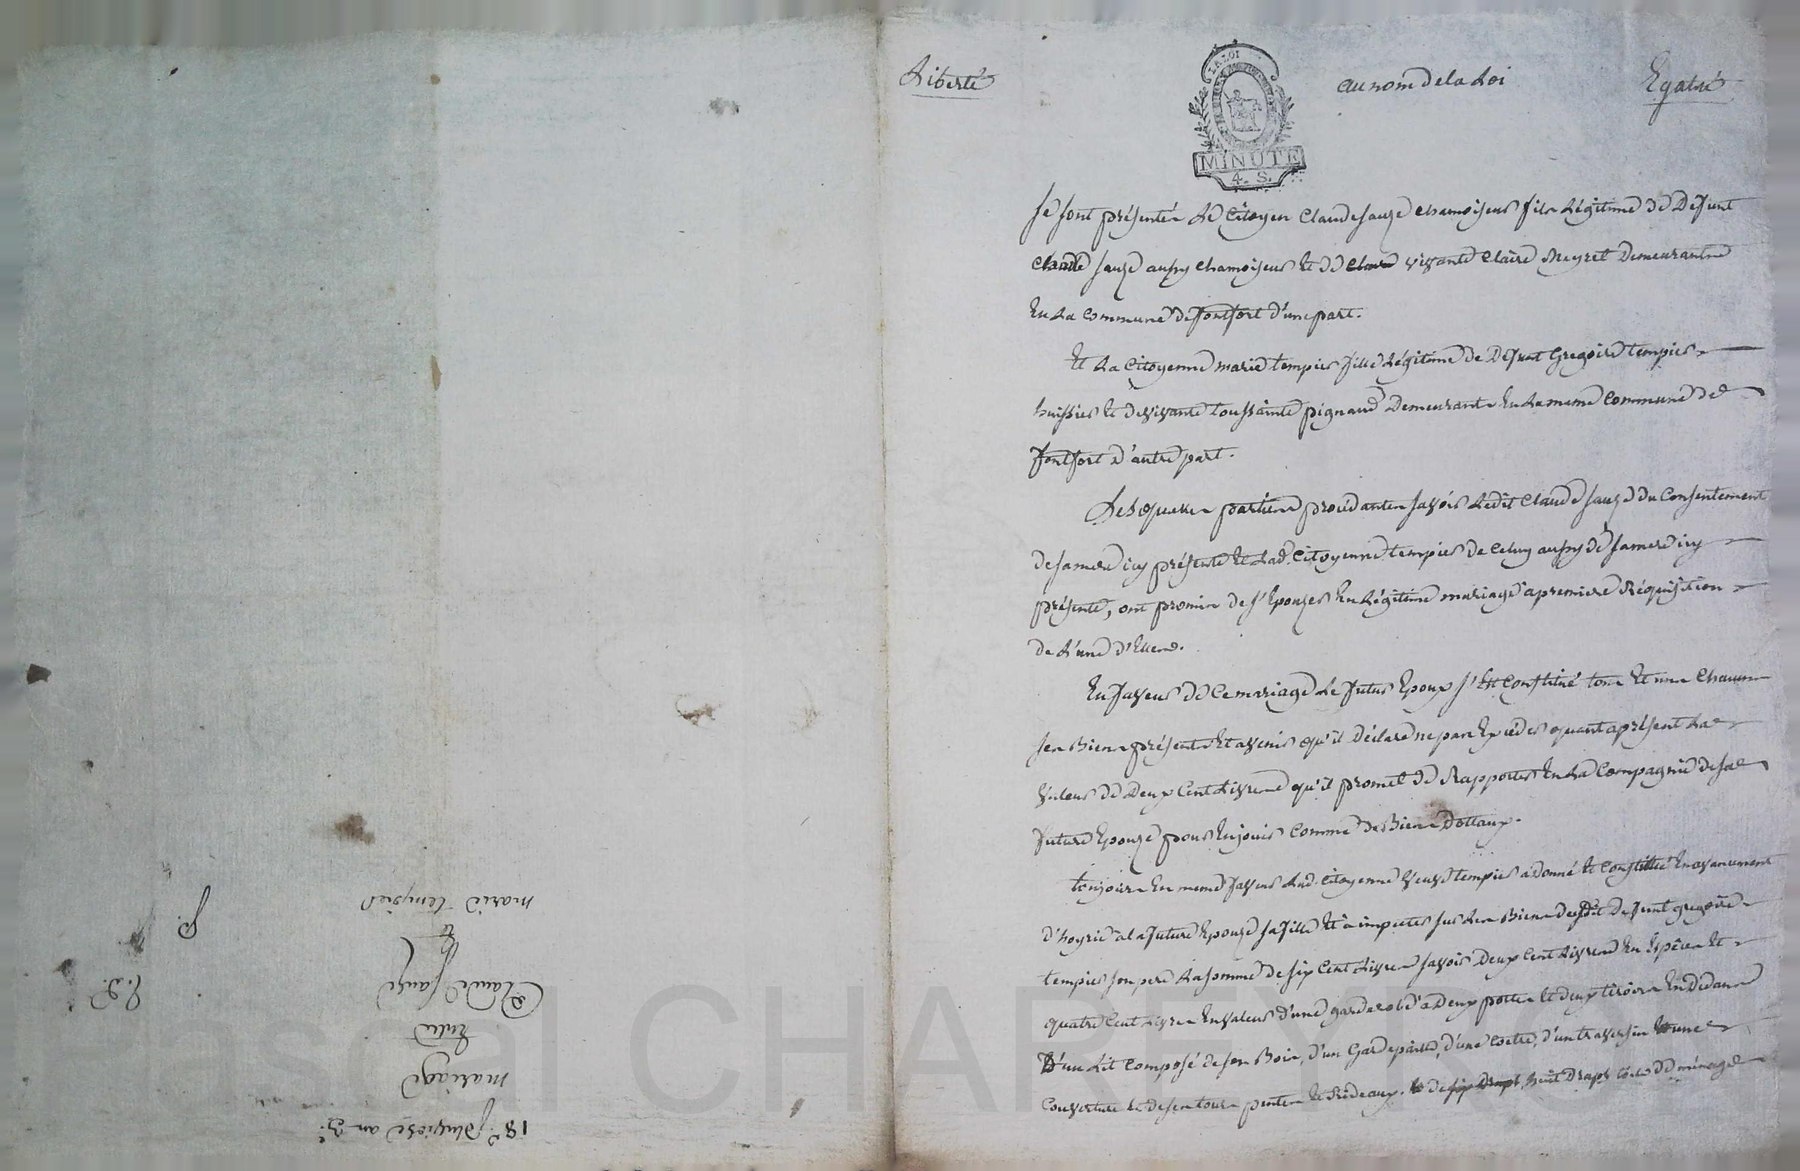 Liberté
au nom de la Loi
Egalité
LA LOI
MINUTE
4. S.
Se sont présentés Le Citoyen Claude Sauze chamoiseur fils Légitime de Defunt
Claude Sauze aussy chamoiseur et de vivante Claire Neyret Demeurant
En La Commune de fontfort d'une part.
Et La Citoyenne marie tempier fille Légitime de Defunt Gregoire tempier
huissier et de vivante toussainte pignaud Demeurante En La meme Commune de
fontfort d'autre part.
Lesquelles parties procédantes savoir Ledit Claude Sauze du Consentement
de sa mere icy présente et Lad. Citoyenne tempier de Celuy aussy de sa mere icy
présente, ont promis de s'Epouzer En Légitime mariage a premiere Réquisition
de L'une d'Elles.
En faveur de Ce mariage Le futur Epoux s'Est Constitué tous et un Chacun
ses Biens présents Et avenir qu'il déclare ne pas Exceder quant aprésent La
valeur de Deux Cent Livres qu'il promet de Rapporter En La Compagnie de sa
future Epouze pour En jouir Comme de Biens Dottaux.
toujours En meme faveur Lad. Citoyenne veuve tempier a donné et Constitué En avancement
d'hoyrie a la future Epouze sa fille Et à imputer sur Les Biens dudit Defunt gregoire
tempier son pere La somme de six Cent Livres savoir Deux Cent Livres En Espèces et
quatre Cent Livres En valeur d'une garderobe a Deux portes et deux tiroirs En Dedans
D'un Lit Composé de son Bois, d'un Gardepaille, d'une Coetre, d'un traversin Et une
Couverture et de ses tours pentes et Rideaux, de six Draps, huit Draps toile de ménage
18 pluviose an 3e
mariage
Entre
Claude Sauze
Et
marie tempier
Pascal CHAREYRON